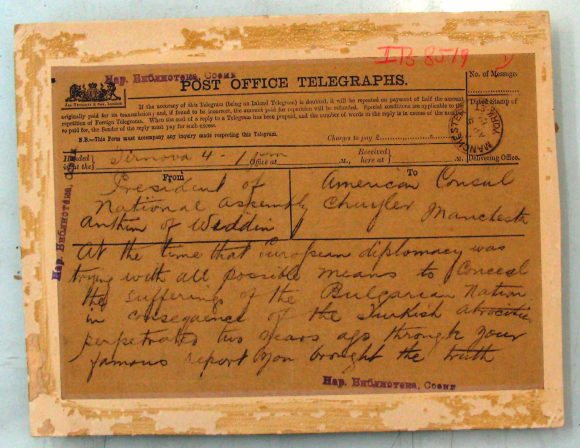 IIБ 8519
Нар. Библиотека, София
POST OFFICE TELEGRAPHS.
No. of Message.
If the accuracy of this Telegram (being an Inland Telegram) is doubted, it will be repeated on payment of half the amount
originally paid for its transmission; and, if found to be incorrect, the amount paid for repetition will be refunded. Special conditions are applicable to the
repetition of Foreign Telegrams. When the cost of a reply to a Telegram has been prepaid, and the number of words in the reply is in excess of the number
so paid for, the Sender of the reply must pay for such excess.
N.B.—This Form must accompany any inquiry made respecting this Telegram.
Charges to pay £
Dated Stamp of
MANCHESTER
Delivering Office.
Handed in at the
Tirnova 4 -
Office at
M.,
Received here at
M.
From
To
President of
National Assembly
Anthim of Weddin
American Consul
Chuyler Manchester
At the time that European diplomacy was
trying with all possible means to Conceal
the sufferings of the Bulgarian Nation
in consequence of the Turkish atrocities
perpetrated two years ago through your
famous report you brought the truth
Нар. Библиотека, София
Нар. Библиотека, София